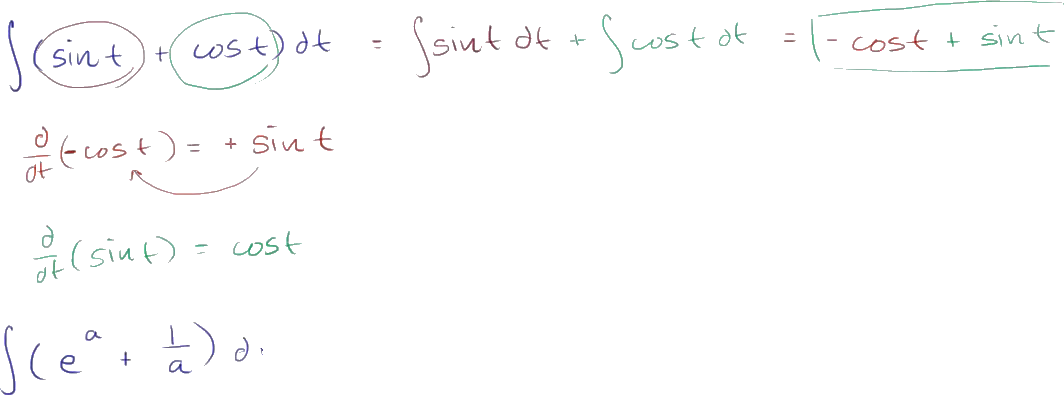 ∫(sin t + cos t) dt = ∫sin t dt + ∫cos t dt = - cos t + sin t
d/dt (-cos t) = + sin t
d/dt (sin t) = cos t
∫(e^a + 1/a) d